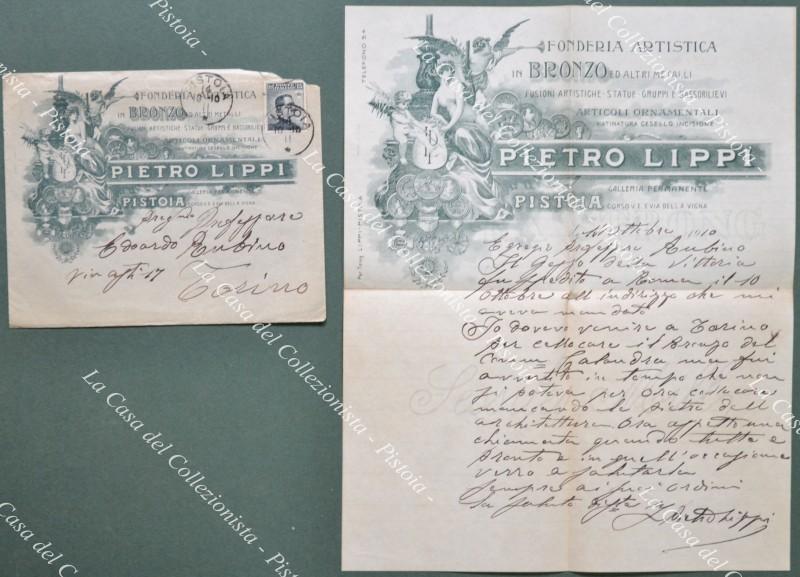 FONDERIA ARTISTICA
IN BRONZO ED ALTRI METALLI
FUSIONI ARTISTICHE - STATUE - GRUPPI E BASSORILIEVI
ARTICOLI ORNAMENTALI
PATINATURA CESELLO INCISIONE
PIETRO LIPPI
GALLERIA PERMANENTE
PISTOIA CORSO V. E. VIA DELLA VIGNA
PISTOIA
Professore
Edoardo Rubino
via 17
Torino
TELEFONO 54
FONDERIA ARTISTICA
IN BRONZO ED ALTRI METALLI
FUSIONI ARTISTICHE - STATUE - GRUPPI E BASSORILIEVI
ARTICOLI ORNAMENTALI
PATINATURA CESELLO INCISIONE
PIETRO LIPPI
GALLERIA PERMANENTE
PISTOIA CORSO V. E. VIA DELLA VIGNA
Ottobre 1910
Egregio Professore Rubino
Il Gesso della Vittoria
fu spedito a Roma il 10
Ottobre all'indirizzo che mi
aveva mandato
Io dovevo venire a Torino
per collocare il Bronzo del
Galandra ma fui
avvertito in tempo che non
si poteva per ora collocare
mancando le pietre dell
architettura. Ora aspetto una
chiamata quando tutto è
pronto e in quell'occasione
verrò a salutarla
Sempre ai suoi ordini
La saluto
Pietro Lippi
La Casa del Collezionista - Pistoia -